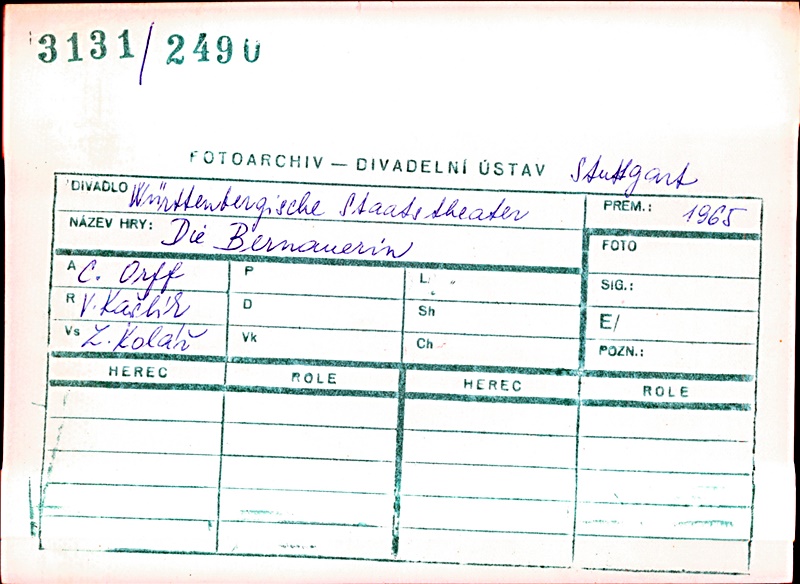 3131/2490
FOTOARCHIV — DIVADELNÍ ÚSTAV Stuttgart
DIVADLO Württenbergische Staatstheater PREM.: 1965
NÁZEV HRY: Die Bernauerin FOTO
A C. Orff P L SIG.:
R V. Kašlík D Sh E/
Vs Z. Kolář Vk Ch POZN.:
HEREC ROLE HEREC ROLE